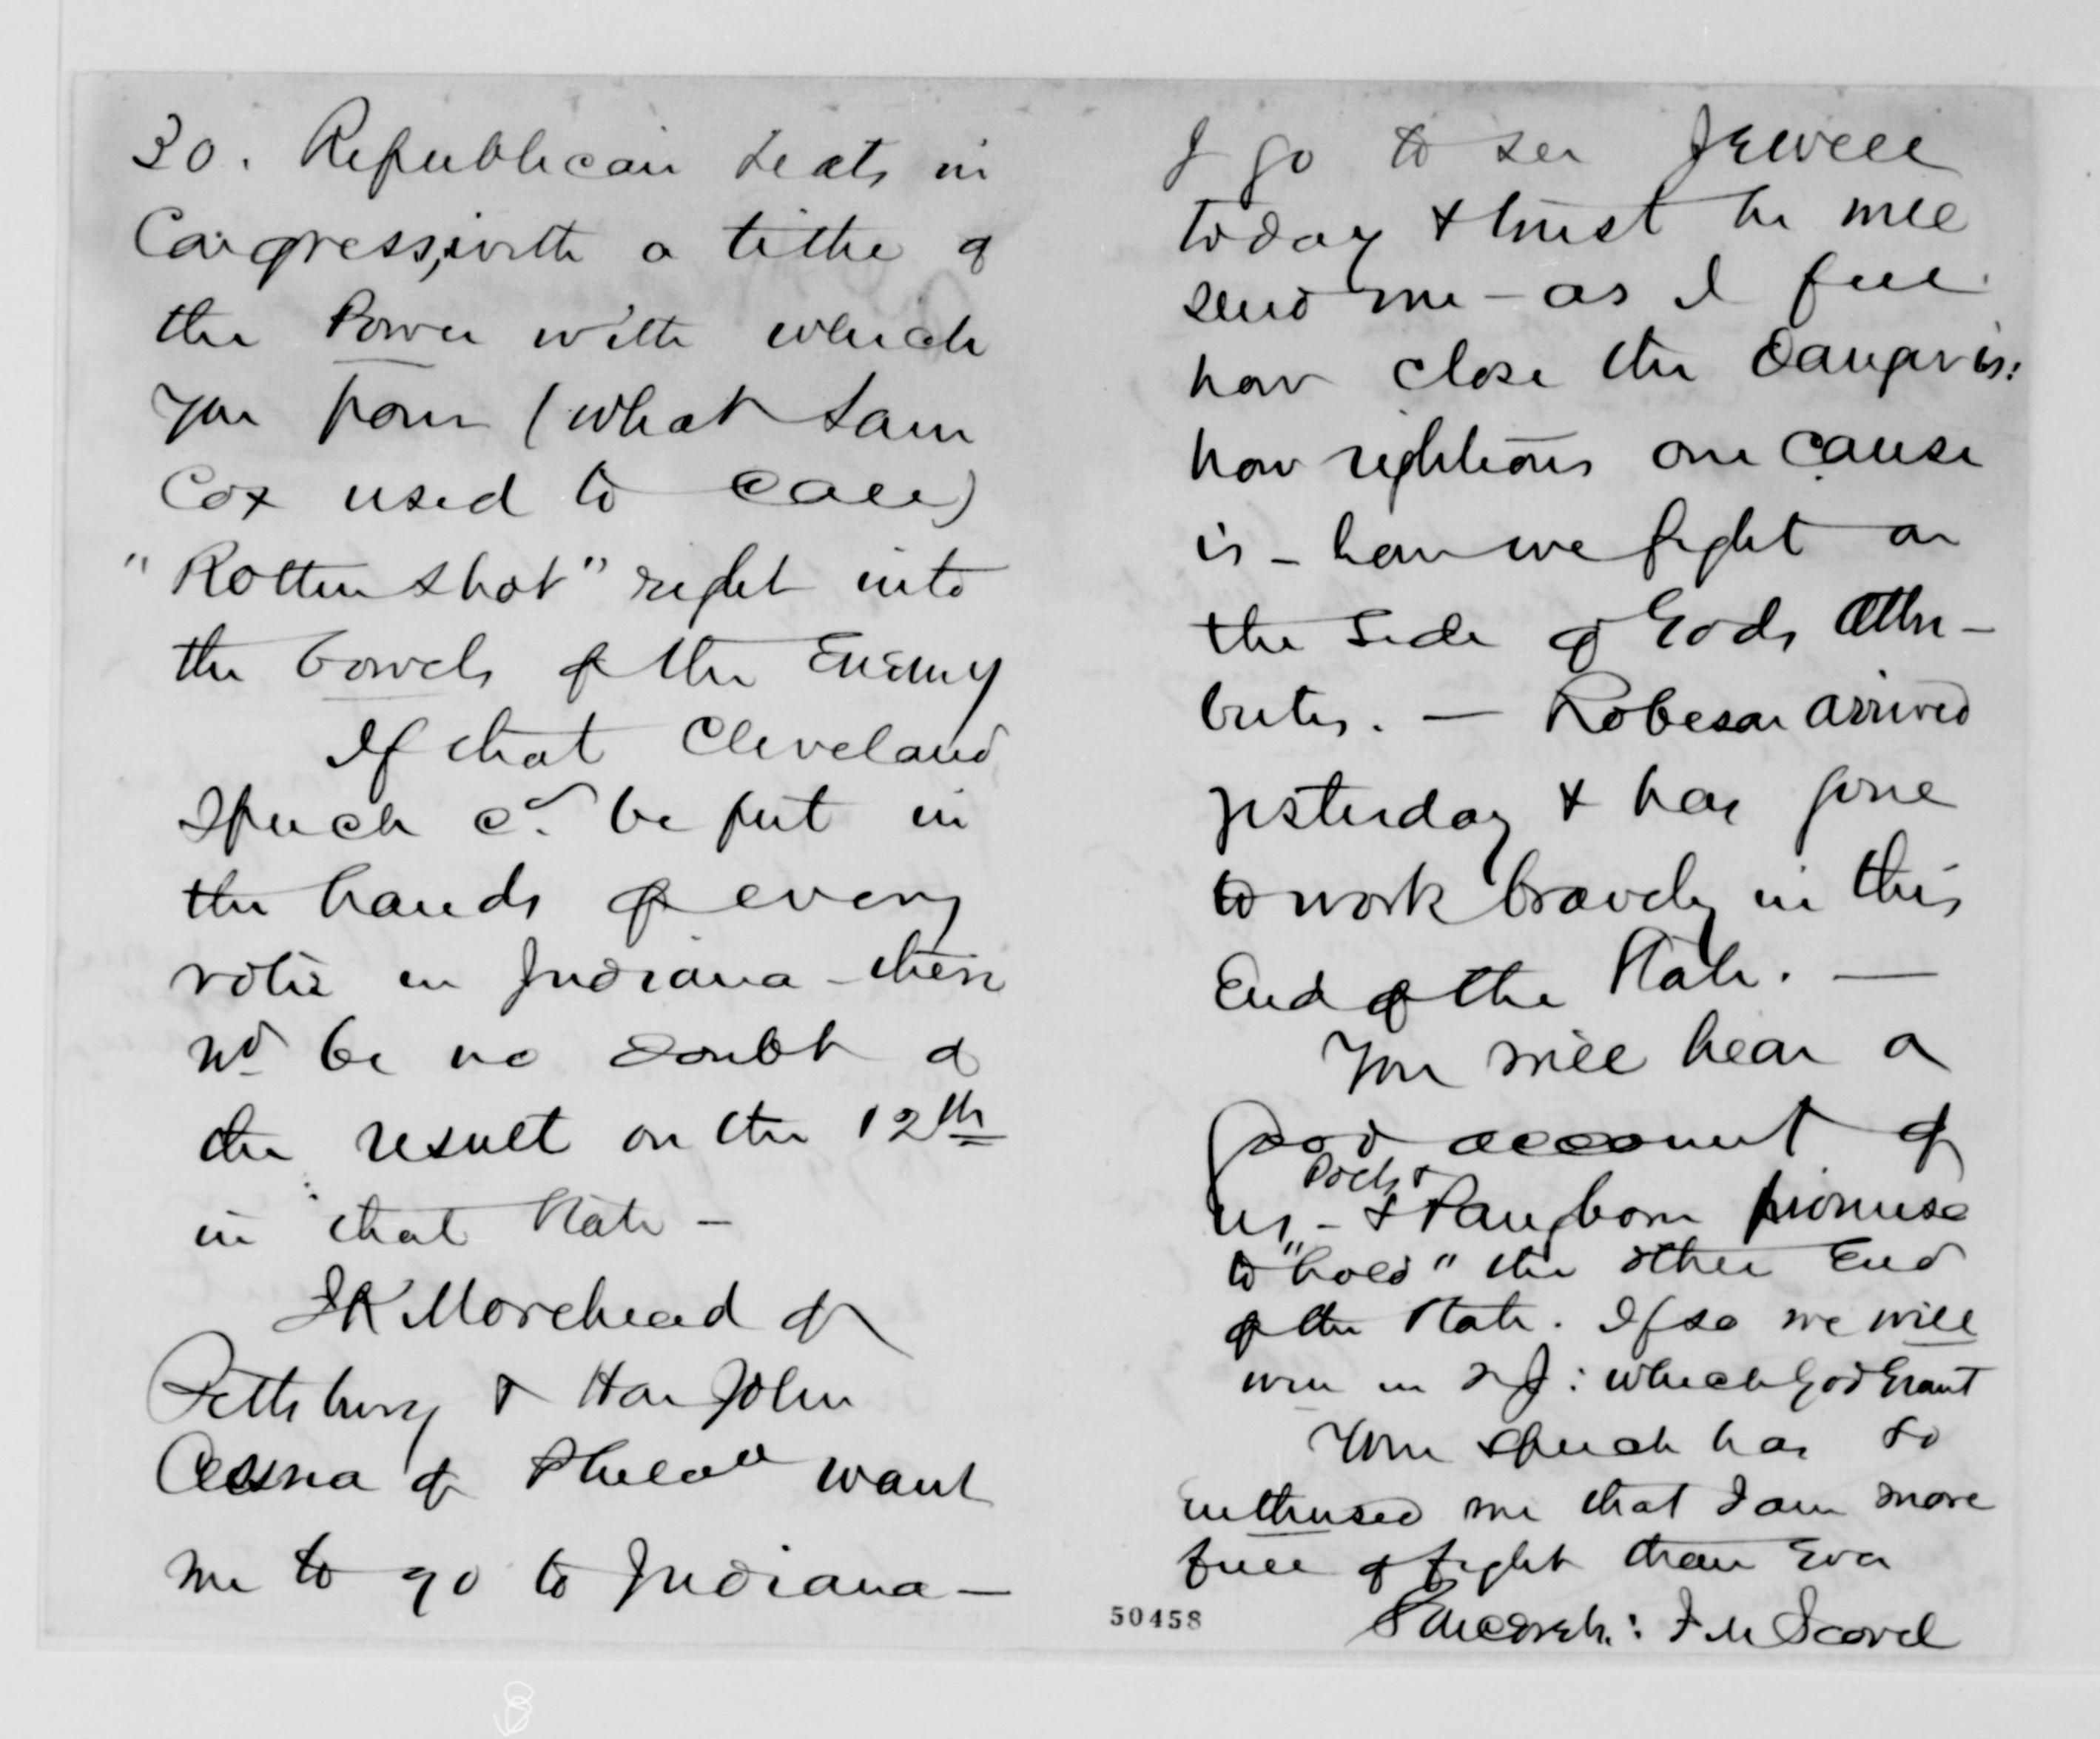 30. Republican seats in
Congress, with a tithe of
the Power with which
you pour (what Sam
Cox used to call)
"Rotten shot" right into
the bowels of the Enemy
If that Cleveland
Speech cd. be put in
the hands of every
voter in Indiana - there
wd be no doubt of
the result on the 12th
in that State -
J K Morehead of
Pittsburg & Hon John
Cessna of Phila want
me to go to Indiana -
I go to see Jewell
today & trust he will
send me - as I feel
how close the danger is:
how righteous our cause
is - how we fight on
the side of Gods Attri-
butes. - Robeson arrived
yesterday & has gone
to work bravely in this
End of the State. -
You will hear a
good account of
us - & Pangborn promise
to "hold" the other End
of the State. If so we will
win in NJ: which God Grant
Your speech has so
enthused me that I am more
full of fight than Ever
Sincerely: J M Scovel
50458